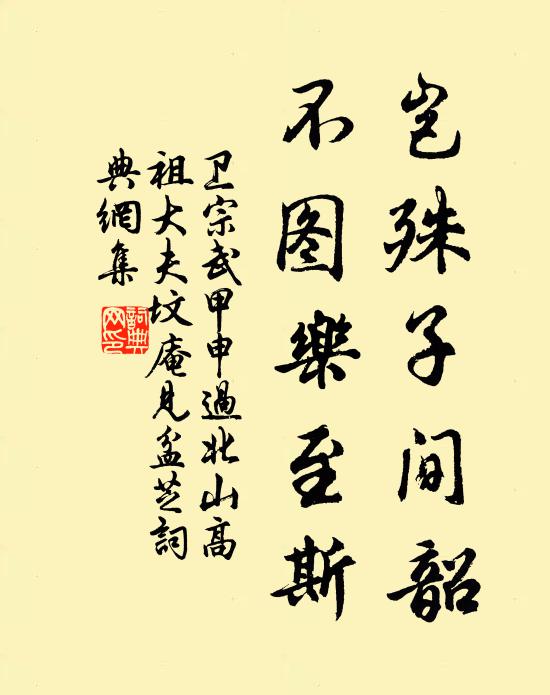 岂殊子闻韶
不图樂至斯
卫宗武甲申過北山高
祖大夫坟庵見盆芝詞
典網集
詞典
网印